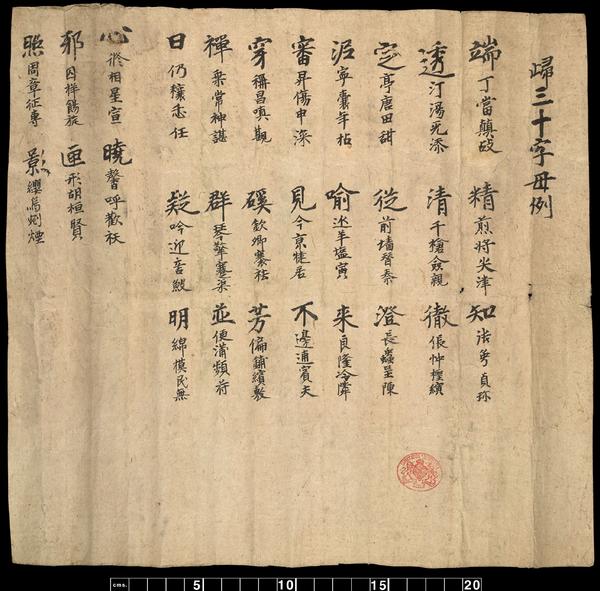 歸三十字母例
端丁當顛故 精煎將尖津 知張衷貞珎
透汀湯天添 清千槍僉親 徹倀忡檉縝
定亭唐田甜 從前墻晉秦 澄長蟲呈陳
泥寧囊年拈 喻延羊塩寅 来良隆冷隣
審昇傷申深 見今京犍居 不邊逋賓夫
穿稱昌嗔覩 磎欽卿褰祛 芳偏鋪繽敷
禪乗常神諶 群琴擎蹇渠 並便蒲頻苻
日仍穰忎任 疑吟迎言 明綿模民無
心修相星宣 曉馨呼歡袄
邪囚祥餳旋 匣形胡桓賢
照周章征專 影纓烏剜煙
cms. 5 10 15 20